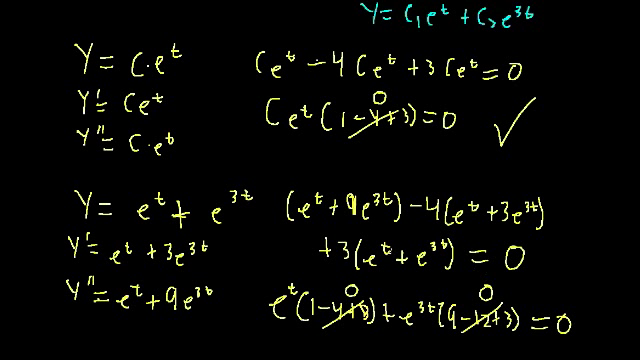 Y = C₁e^t + C₂e^3t
Y = C·e^t
Y' = Ce^t
Y'' = C·e^t
Ce^t - 4Ce^t + 3Ce^t = 0
0
Ce^t(1-4+3) = 0 ✓
Y = e^t + e^3t
Y' = e^t + 3e^3t
Y'' = e^t + 9e^3t
(e^t + 9e^3t) - 4(e^t + 3e^3t)
+3(e^t + e^3t) = 0
0 0
e^t(1-4+3) + e^3t(9-12+3) = 0